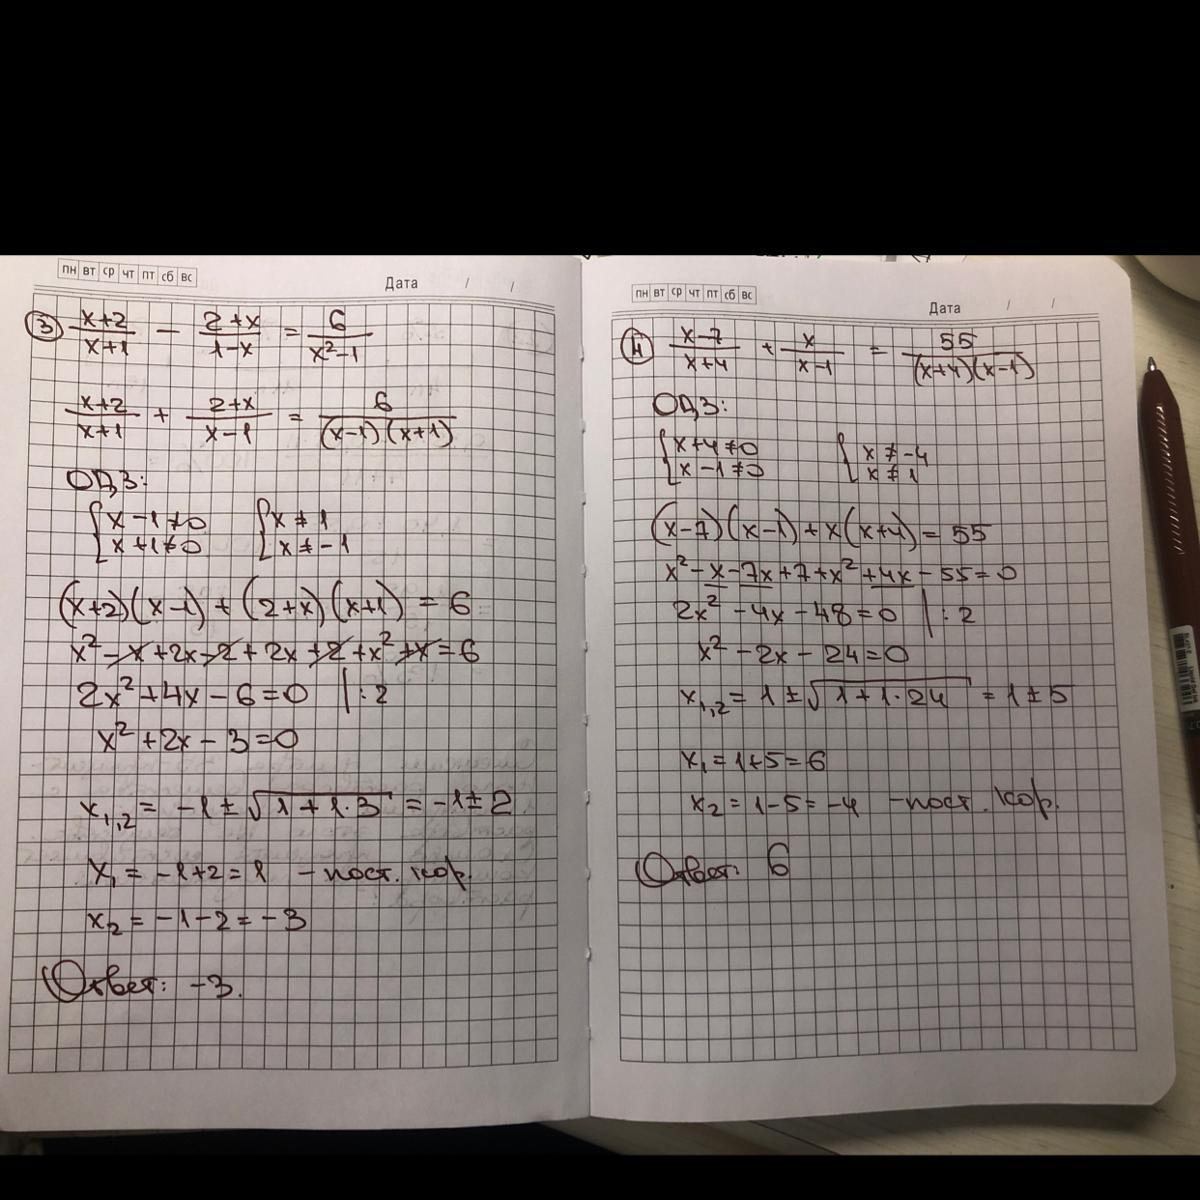 пн вт ср чт пт сб вс
Дата / /
③ (x+2)/(x+1) − (2+x)/(1−x) = 6/(x²−1)
(x+2)/(x+1) + (2+x)/(x−1) = 6/((x−1)(x+1))
ОДЗ:
{x−1≠0 {x≠1
{x+1≠0 {x≠−1
(x+2)(x−1)+(2+x)(x+1)=6
x²−x+2x−2+2x+2+x²+x=6
2x²+4x−6=0 |:2
x²+2x−3=0
x₁,₂ = −1±√(1+1·3) = −1±2
x₁ = −1+2=1 − пост. кор.
x₂ = −1−2=−3
Ответ: −3.
пн вт ср чт пт сб вс
Дата / /
④ (x−7)/(x+4) + x/(x−1) = 55/((x+4)(x−1))
ОДЗ:
{x+4≠0 {x≠−4
{x−1≠0 {x≠1
(x−7)(x−1)+x(x+4)=55
x²−x−7x+7+x²+4x−55=0
2x²−4x−48=0 |:2
x²−2x−24=0
x₁,₂=1±√(1+1·24) =1±5
x₁=1+5=6
x₂=1−5=−4 −пост. кор.
Ответ: 6